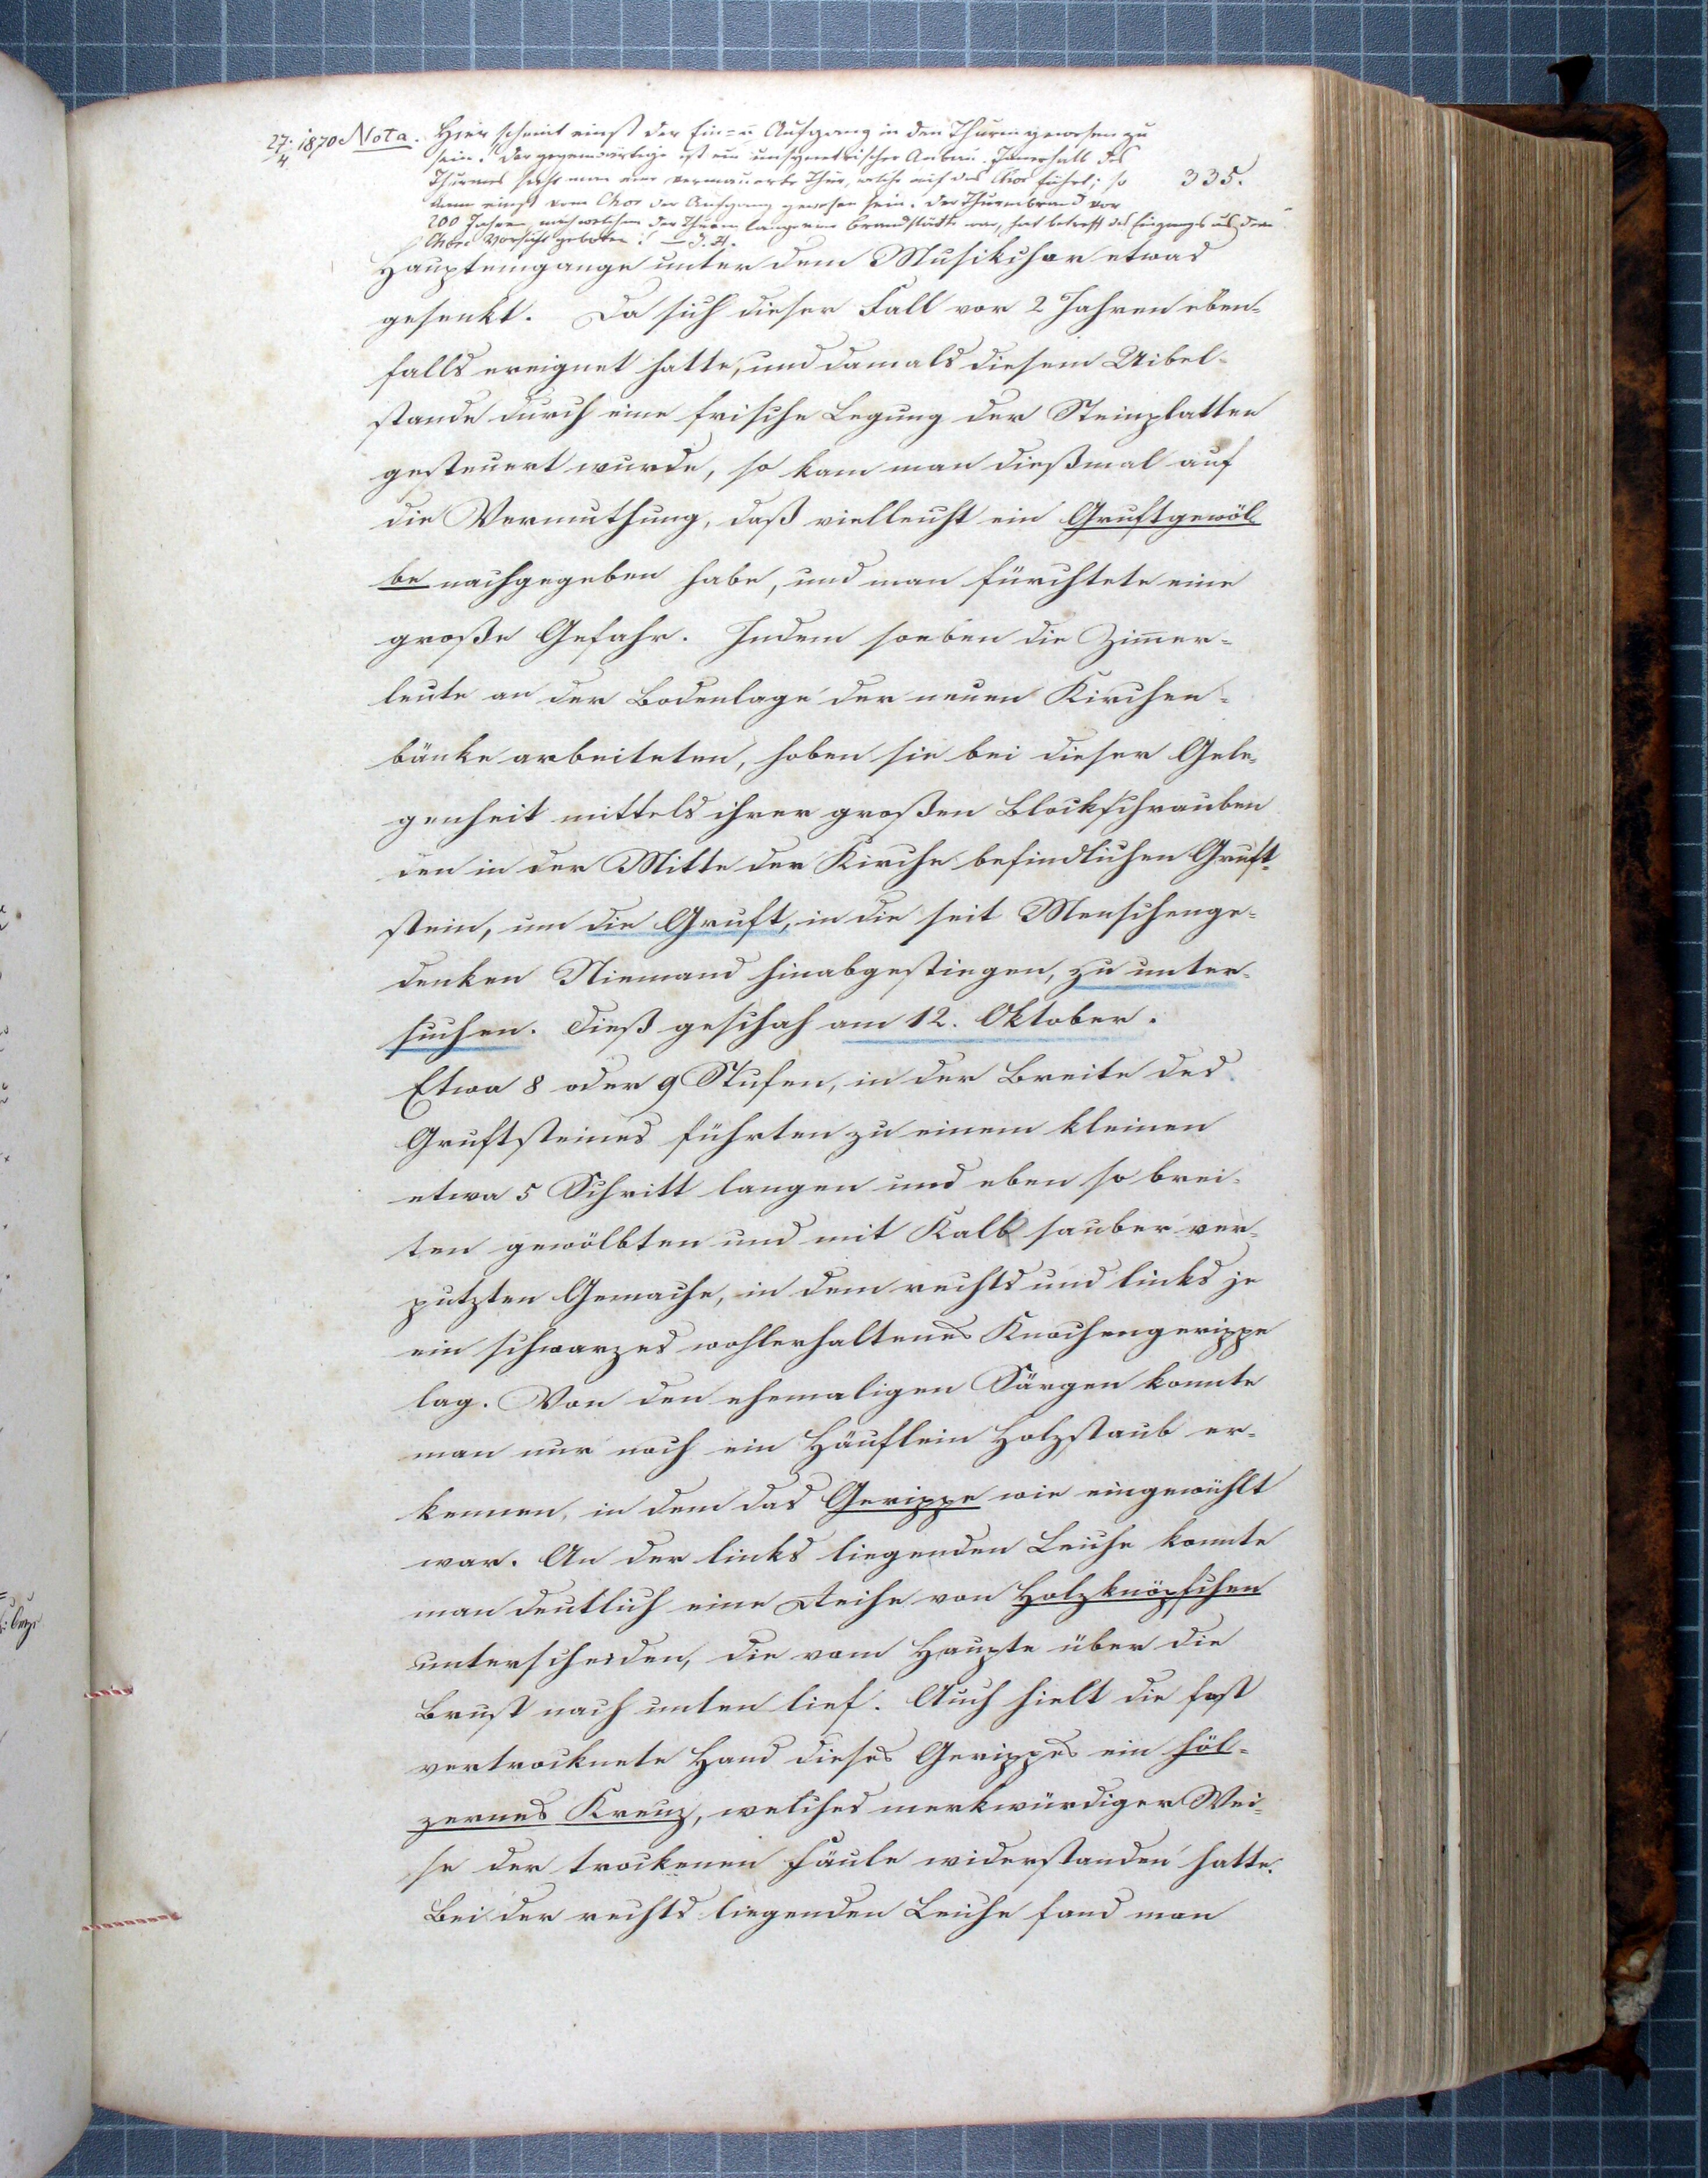 27./4. 1870 Nota. Hier scheint einst der Ein= u Aufgang in den Thurm gewesen zu
sein! Der gegenwärtige ist ein unsymetrischer Anbau. Innerhalb des
Thurmes sieht man eine vermauerte Thür, welche auf das Chor führt; so
335.
kann einst vom Chor der Aufgang gewesen sein. Der Thurmbrand vor
200 Jahren, nach welchem der Thurm lange eine Brandstätte war, hat betreff des Eingangs aus dem
Chore Vorsicht geboten! —
Haupteingange unter dem Musikchor etwas
gesenkt. Da sich dieser Fall vor 2 Jahren eben-
falls ereignet hatte, und damals diesem Uibel-
stande durch eine frische Legung der Steinplatten
gesteuert wurde, so kam man dießmal auf
die Vermuthung, daß vielleicht ein Gruftgewöl-
be nachgegeben habe, und man fürchtete eine
große Gefahr. Indem soeben die Zimer-
leute an der Bodenlage der neuen Kirchen-
bänke arbeiteten, hoben sie bei dieser Gele-
genheit mittels ihrer großen Blockschrauben
den in der Mitte der Kirche befindlichen Gruft-
stein, um die Gruft, in die seit Menschenge-
denken Niemand hinabgestiegen, zu unter-
suchen. Dieß geschah am 12. Oktober.
Etwa 8 oder 9 Stufen, in der Breite des
Gruftsteines führten zu einem kleinen
etwa 5 Schritt langen und eben so brei-
ten gewölbten und mit Kalk sauber ver-
putzten Gemache, in dem rechts und links je
ein schwarzes wohlerhaltenes Knochengerippe
lag. Von den ehemaligen Särgen konnte
man nur noch ein Häuflein Holzstaub er-
kennen, in dem das Gerippe wie eingewühlt
war. An der links liegenden Leiche konnte
man deutlich eine Reihe von Holzknöpfchen
unterscheiden, die vom Haupte über die
Brust nach unten lief. Auch hielt die fast
vertrocknete Hand dieses Gerippes ein höl-
zernes Kreuz, welches merkwürdiger Wei-
se der trockenen Fäule widerstanden hatte.
Bei der rechts liegenden Leiche fand man